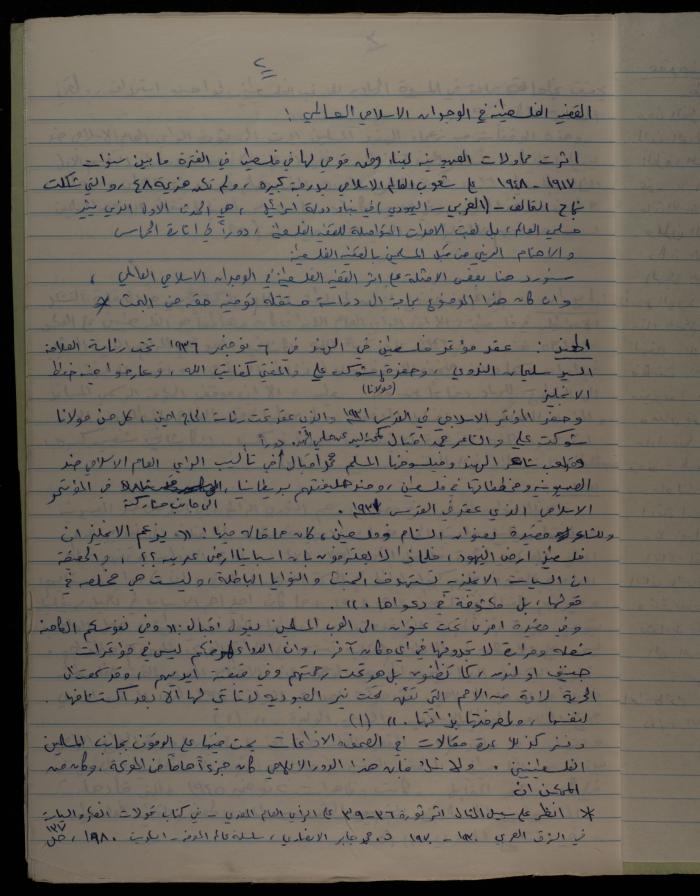 ٢
القضية الفلسطينية في الوجدان الاسلامي العالمي :
اثرت محاولات الصهيونية لبناء وطن قومي لها في فلسطين في الفترة ما بين سنوات
١٩١٧ - ١٩٤٨ على شعوب العالم الاسلامي بدرجة كبيرة ، ولم تكن هزيمة ٤٨ ، والتي شكلت
نجاح التحالف - (الغربي - اليهودي) في بناء دولة اسرائيل ، هي الحدث الاول الذي يثير
مسلمي العالم ، بل لعبت الاحداث المتواصلة للقضية الفلسطينية ، دوراً في اثارة الحماس
والاهتمام الديني من قبل المسلمين بالقضية الفلسطينية
سنورد هنا بعض الامثلة على اثر القضية الفلسطينية في الوجدان الاسلامي العالمي ،
وان كان هذا الموضوع بحاجة الى دراسة مستقلة توفيه حقه من البحث *
الهند : عقد مؤتمر فلسطين في الهند في ٦ نوفمبر ١٩٣٦ تحت رئاسة العلامة
السيد سليمان الندوي ، وحضره شوكت علي والمفتي كفايت الله ، وعارضوا فيه خطط
(مولانا)
الانجليز
وحضر المؤتمر الاسلامي في القدس ١٩٣١ والذي عقد تحت رئاسة الحاج امين ، كل من مولانا
شوكت علي و الشاعر محمد اقبال كممثلين عن مسلمي الهند
ولعب شاعر الهند وفيلسوفها المسلم محمد اقبال في تأليب الرأي العام الاسلامي ضد
دوراً
الصهيونية ومخططاتها في فلسطين ، وضد حليفتهم بريطانيا ، في المؤتمر
الى جانب مشاركته
الاسلامي الذي عقد في القدس ١٩٣١ .
وللشاعر قصيدة بعنوان الشام وفلسطين ، كان مما قاله فيها : " يزعم الانجليز ان
فلسطين ارض اليهود ، فلماذا لا يعترفون بان اسبانيا ارض عربية ؟؟ ، والحقيقة
ان السياسة الانجليزية تستهدف الخبث والنوايا الباطلة ، وليست هي مخلصة في
قولها ، بل مكشوفة في دعواها . " .
وفي قصيدة اخرى تحت عنوان الى العرب المسلمين يقول اقبال : " وفي نفوسكم الكامنة
شعلة وحرارة لا تجدونها في اي مكان آخر ، وان الدواء لمرضكم ليس في مؤتمرات
جنيف او لندن ، كما تظنون بل هو تحت رحمتهم وفي قبضة ايديهم ، وقد سمعت ان
الحرية لامة من الامم التي تئن تحت نير العبودية لا تأتي لها الا بعد اكتشافها
لنفسها ، ولمعرفتها بذاتها . " (١)
ونشر كذلك عدة مقالات في الصحف الاذاعات يحث فيها على الوقوف بجانب المسلمين
الفلسطينيين . ولا شك فان هذا الدور الاعلامي كان جزءاً هاماً من المعركة ، وكان من
الممكن ان
* انظر على سبيل المثال اثر ثورة ٣٦ - ٣٩ على الرأي العام المصري - في كتاب تحولات الفكر والسياسة
في الشرق العربي ١٩٣٠ - ١٩٧٠ د. محمد جابر الانصاري ، سلسلة عالم المعرفة - الكويت ١٩٨٠ ، ص
١٣٧